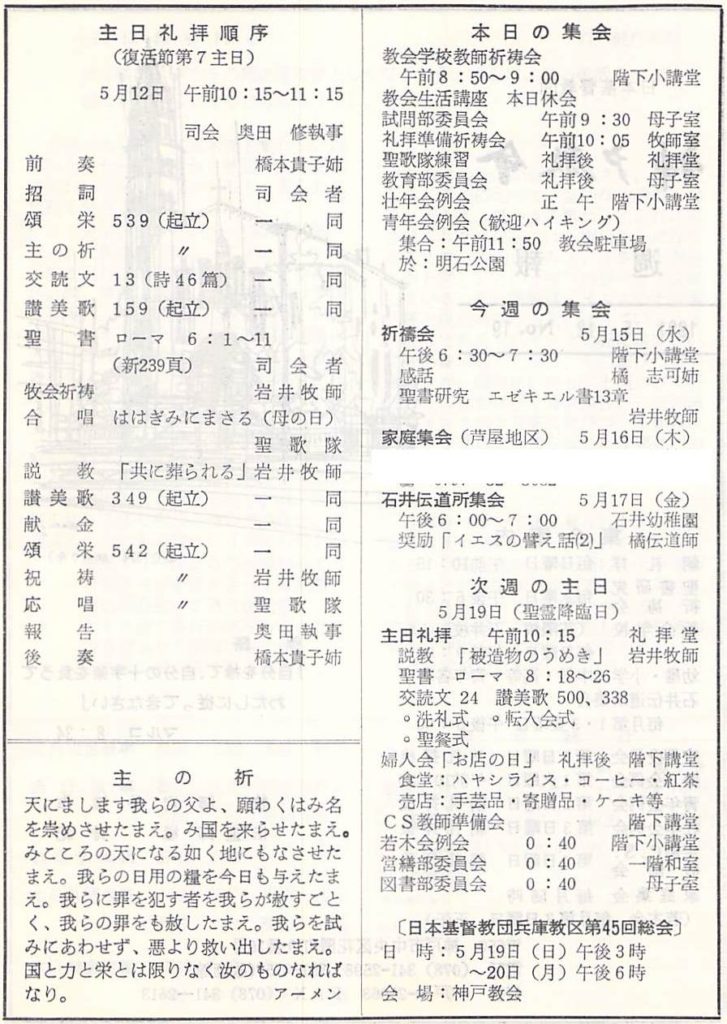 主日礼拝順序
(復活節第7主日)
5月12日 午前10:15〜11:15
司会 奥田 修執事
前奏 橋本貴子姉
招詞 司会者
頌栄 539(起立) 一同
主の祈 〃 一同
交読文 13(詩46篇) 一同
讃美歌 159(起立) 一同
聖書 ローマ 6:1〜11
(新239頁) 司会者
牧会祈祷 岩井牧師
合唱 ははぎみにまさる(母の日)
聖歌隊
説教 「共に葬られる」岩井牧師
讃美歌 349(起立) 一同
献金 一同
頌栄 542(起立) 一同
祝祷 〃 岩井牧師
応唱 〃 聖歌隊
報告 奥田執事
後奏 橋本貴子姉
主の祈
天にまします我らの父よ、願わくはみ名
を崇めさせたまえ。み国を来らせたまえ。
みこころの天になる如く地にもなさせた
まえ。我らの日用の糧を今日も与えたま
え。我らに罪を犯す者を我らが赦すごと
く、我らの罪をも赦したまえ。我らを試
みにあわせず、悪より救い出したまえ。
国と力と栄とは限りなく汝のものなれば
なり。 アーメン
本日の集会
教会学校教師祈祷会
午前8:50〜9:00 階下小講堂
教会生活講座 本日休会
試問部委員会 午前9:30 母子室
礼拝準備祈祷会 午前10:05 牧師室
聖歌隊練習 礼拝後 礼拝堂
教育部委員会 礼拝後 母子室
壮年会例会 正午 階下小講堂
青年会例会(歓迎ハイキング)
集合:午前11:50 教会駐車場
於:明石公園
今週の集会
祈禱会 5月15日(水)
午後6:30〜7:30 階下小講堂
感話 橘 志可姉
聖書研究 エゼキエル書13章
岩井牧師
家庭集会(芦屋地区) 5月16日(木)
石井伝道所集会 5月17日(金)
午後6:00〜7:00 石井幼稚園
奨励「イエスの譬え話(2)」 橘伝道師
次週の主日
5月19日(聖霊降臨日)
主日礼拝 午前10:15 礼拝堂
説教 「被造物のうめき」 岩井牧師
聖書 ローマ 8:18〜26
交読文 24 讃美歌 500, 338
◦洗礼式 ◦転入会式
◦聖餐式
婦人会「お店の日」 礼拝後 階下講堂
食堂:ハヤシライス・コーヒー・紅茶
売店:手芸品・寄贈品・ケーキ等
CS教師準備会 階下講堂
若木会例会 0:40 階下小講堂
営繕部委員会 0:40 一階和室
図書部委員会 0:40 母子室
〔日本基督教団兵庫教区第45回総会〕
日時:5月19日(日)午後3時
〜20日(月)午後6時
会場:神戸教会